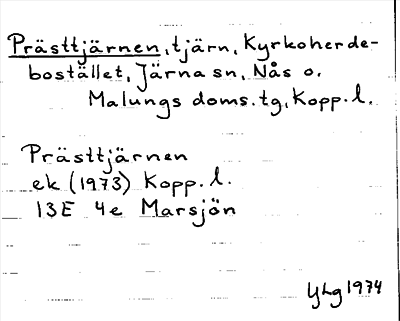 Prästtjärnen, tjärn, Kyrkoherde-
bostället, Järna sn, Nås o.
Malungs doms.tg, Kopp. l.
Prästtjärnen
ek (1973) Kopp. l.
13E 4e Marsjön
YLg 1974